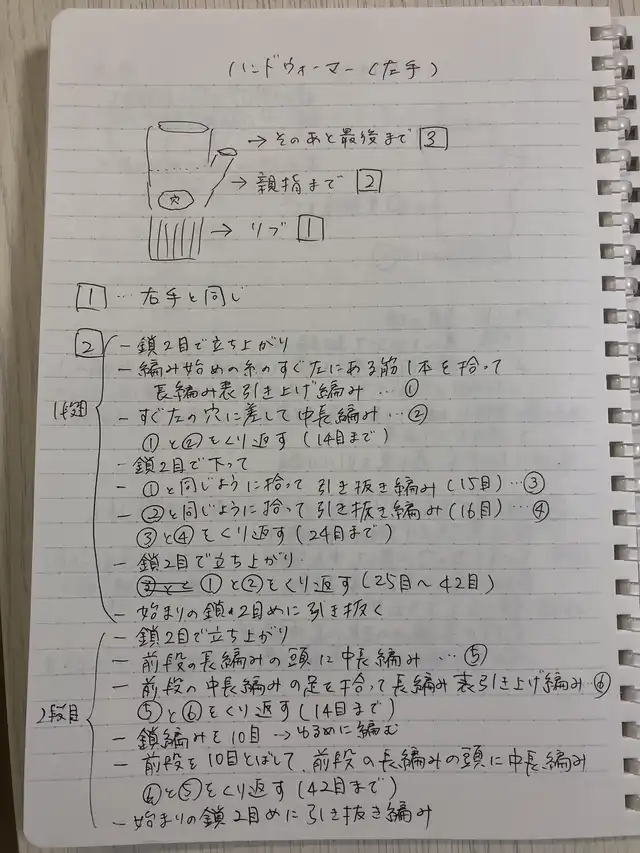 ハンドウォーマー(左手)
→そのあと最後まで 3
→親指まで 2
穴
→リブ 1
1 … 右手と同じ
2
1段目
- 鎖2目で立ち上がり
- 編み始めの糸のすぐ左にある筋1本を拾って
長編み表引き上げ編み…①
- すぐ左の穴に差して中長編み…②
①と②をくり返す(14目まで)
- 鎖2目で下って
- ①と同じように拾って引き抜き編み(15目)…③
- ②と同じように拾って引き抜き編み(16目)…④
③と④をくり返す(24目まで)
- 鎖2目で立ち上がり
③と ①と②をくり返す(25目〜42目)
- 始まりの鎖2目めに引き抜く
2段目
- 鎖2目で立ち上がり
- 前段の長編みの頭に中長編み…⑤
- 前段の中長編みの足を拾って長編み表引き上げ編み⑥
⑤と⑥をくり返す(14目まで)
- 鎖編みを10目→ゆるめに編む
- 前段を10目とばして、前段の長編みの頭に中長編み
⑥と⑤をくり返す(42目まで)
- 始まりの鎖2目めに引き抜き編み